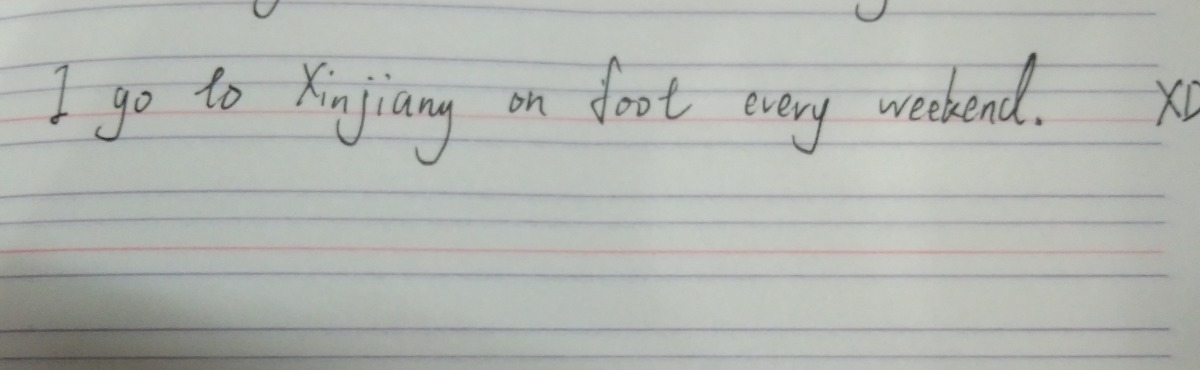 I go to Xinjiang on foot every weekend. XD